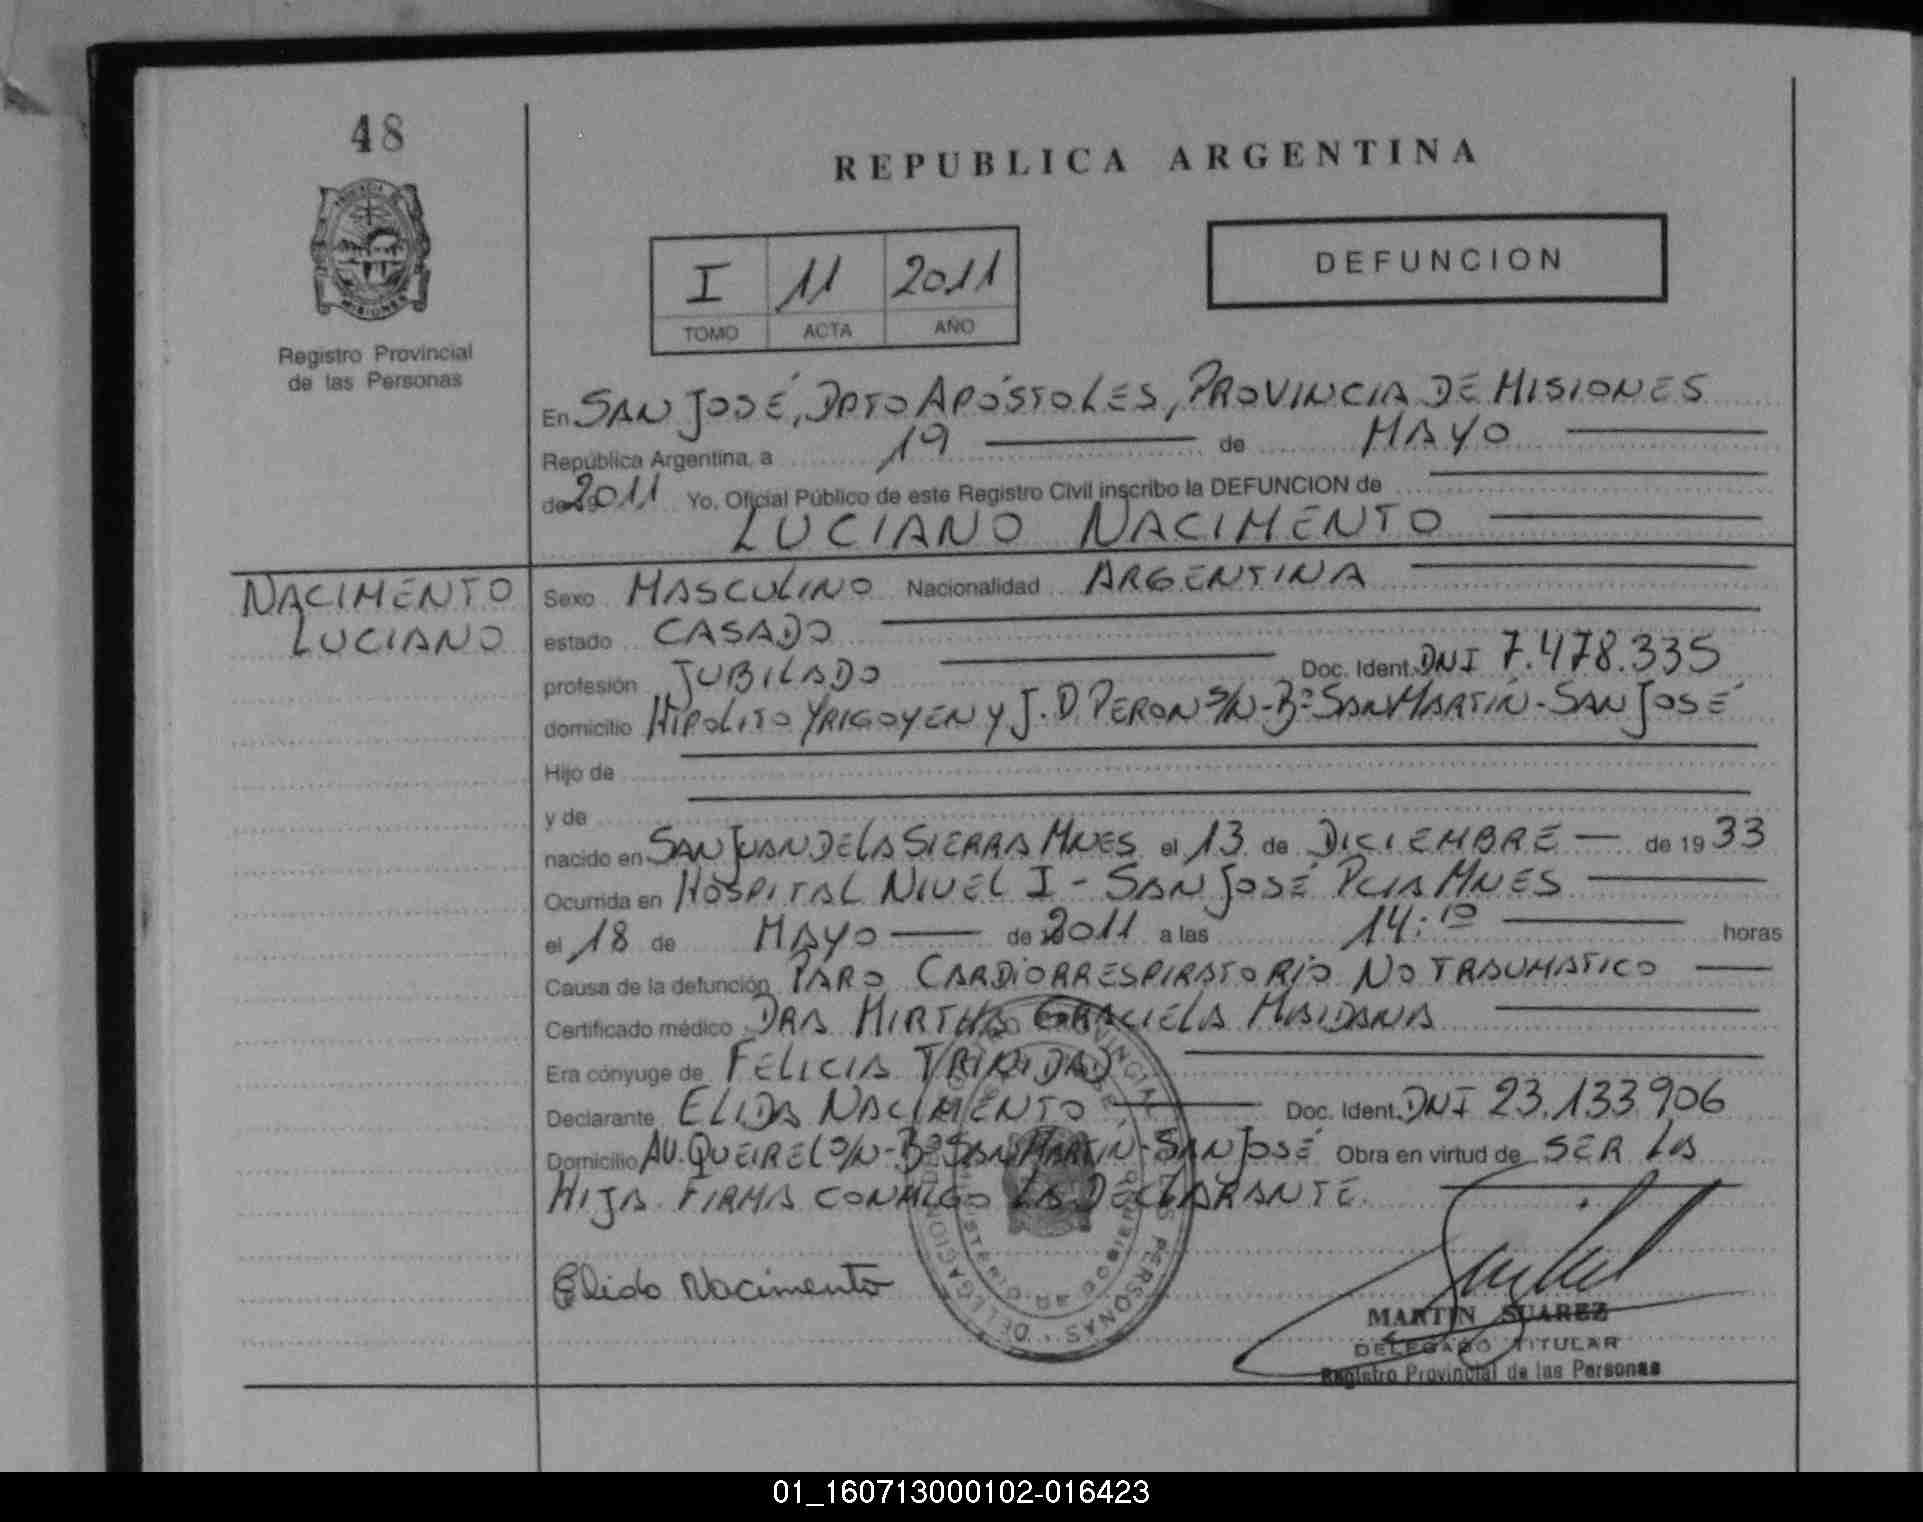 48
REPUBLICA ARGENTINA
PROVINCIA
MISIONES
DEFUNCION
I 11 2011
TOMO ACTA AÑO
Registro Provincial
de las Personas
En SAN JOSÉ, DPTO APÓSTOLES, PROVINCIA DE MISIONES
República Argentina, a 19 de MAYO
de 2011 Yo, Oficial Público de este Registro Civil inscribo la DEFUNCION de
LUCIANO NACIMENTO
NACIMENTO
LUCIANO
Sexo MASCULINO Nacionalidad ARGENTINA
estado CASADO
profesión JUBILADO Doc. Ident. DNI 7.478.335
domicilio HIPOLITO YRIGOYEN Y J. D. PERON S/N - Bº SAN MARTIN - SAN JOSÉ
Hijo de
y de
nacido en SAN JUAN DE LA SIERRA MNES el 13 de DICIEMBRE de 1933
Ocurrida en HOSPITAL NIVEL I - SAN JOSÉ PCIA MNES
el 18 de MAYO de 2011 a las 14:10 horas
Causa de la defunción PARO CARDIORRESPIRATORIO NO TRAUMATICO
Certificado médico DRA MIRTHA GRACIELA MAIDANA
Era cónyuge de FELICIA TRINIDAD
Declarante ELIDA NACIMENTO Doc. Ident. DNI 23.133.906
Domicilio AV. QUEIREL S/N - Bº SAN MARTIN - SAN JOSÉ Obra en virtud de SER LA
HIJA. FIRMA CONMIGO LA DECLARANTE.
Elida Nacimento
MARTIN SUAREZ
DELEGADO TITULAR
Registro Provincial de las Personas
01_160713000102-016423